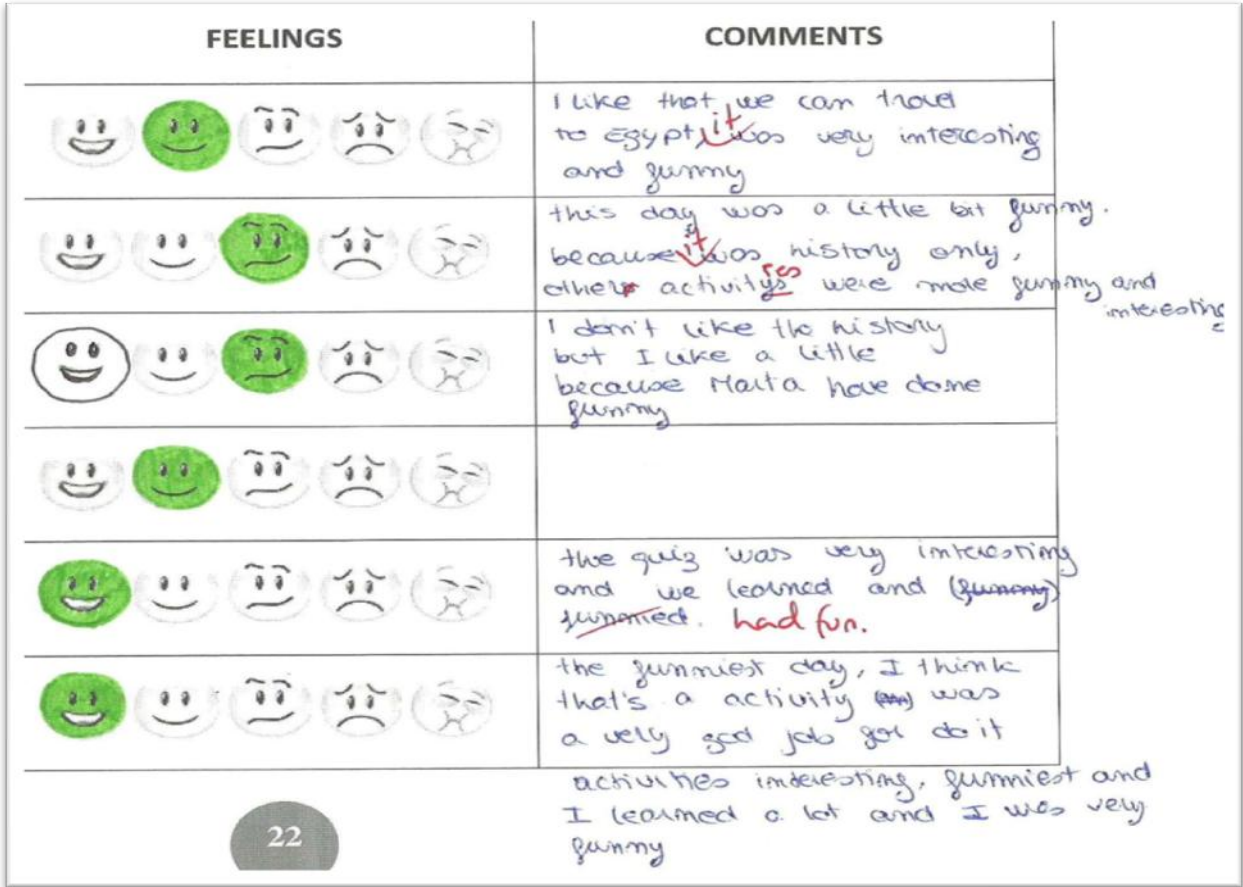 FEELINGS
COMMENTS
I like that we can travel
to Egypt, it was very interesting
and funny
this day was a little bit funny.
because it was history only,
other activityes ies were more funny and
interesting
I don't like the history
but I like a little
because Marta have done
funny
the quiz was very interesting
and we learned and (funny)
funnied. had fun.
the funniest day, I think
that's a activity was
a very god job for do it
activities interesting, funniest and
I learned a lot and I was very
funny
22